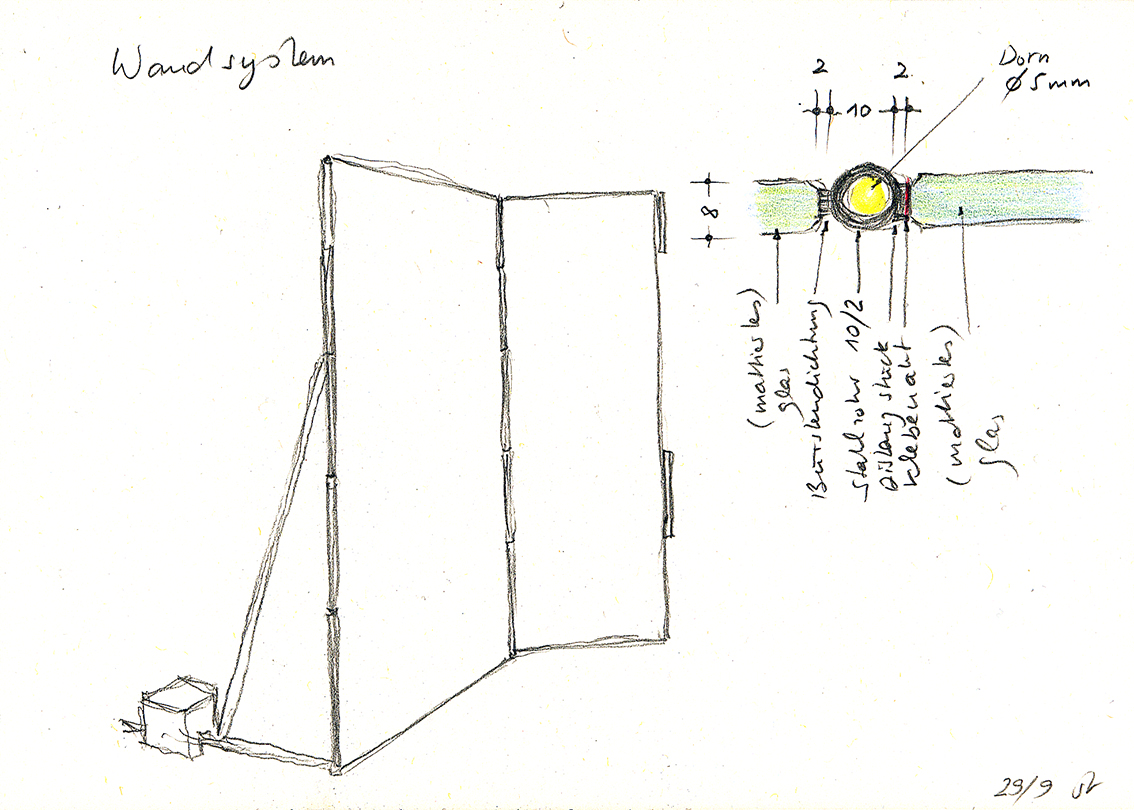 Wandsystem
Dorn
Ø 5mm
2
10
2
8
(mattiertes)
glas
Bürstendichtung
Stahlrohr 10/2
Distanzstück
Klebenaht
(mattiertes)
glas
29/9